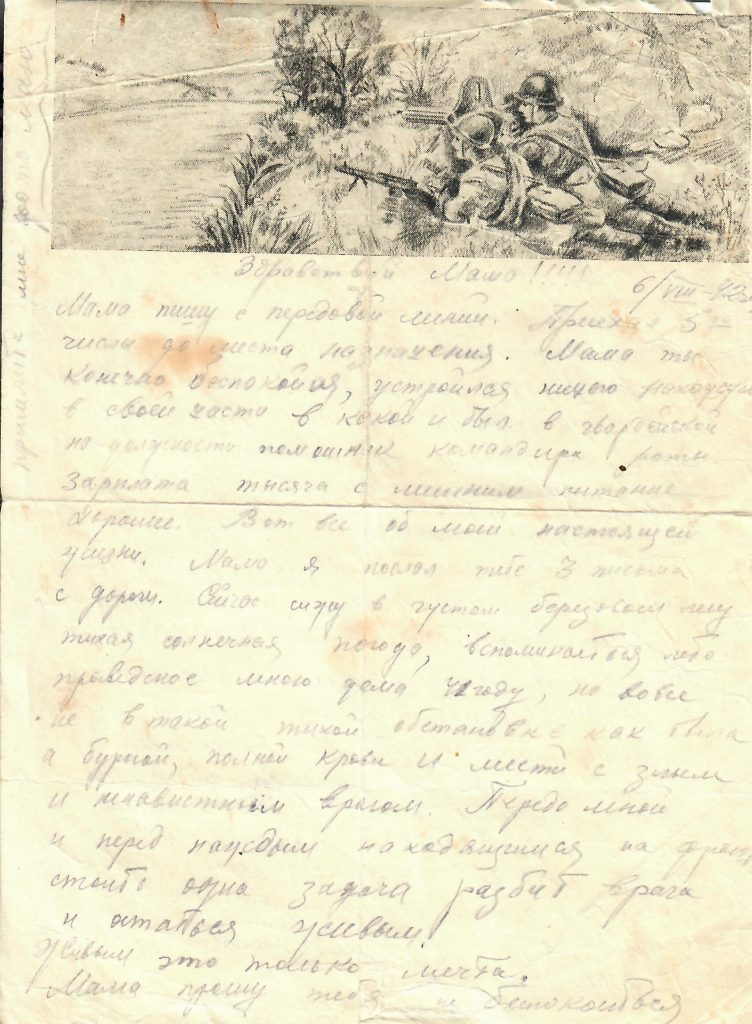 Здравствуй Мама!!!!!
6/VIII-42
Мама пишу с передовой линии. Приехал 5го
числа до места назначения. Мама ты
конечно беспокойся, устроился ничего нахожусь
в своей части в какой и был в гвардейской
на должности помошник командира роты
Зарплата тысяча с лишним питание
хорошие. Вот все об моей настоящей
жизни. Мама я послал тебе 3 письма
с дороги. Сейчас сижу в густом березовом лесу
тихая солнечная погода, вспоминаеться лето
проведеное мною дома 41году, но вовсе
не в такой тихой обстановке как была
а бурной, полной крови и мести с злым
и ненавистным врагом. Передо мной
и перед каждым находящимся на фронте
стоить одна задача разбит врага
и остаться живым.
Живым это только мечта.
Мама прошу тебя не беспокоиться
пришлите мне фото мало